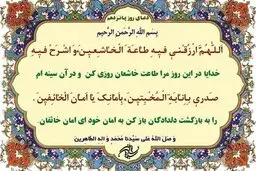 دعای روز پانزدهم
بِسْمِ اللَّهِ الرَّحْمَنِ الرَّحِيمِ
اَللّهُمَّ ارْزُقْنی فیهِ طاعَةَ الْخاشِعینَ وَ اشْرَحْ فیهِ
خدایا در این روز مرا طاعت خاشعان روزی کن و در آن سینه ام
صَدری بِاِنابَةِ الْمُخْبِتینَ بِاَمانِکَ یا اَمانَ الْخائِفینَ
را به بازگشت دلدادگان باز کن به امان خود ای امان خائفان
وَ صَلَّ اللهُ عَلی سَیِّدِنا مُحَمَّدٍ وَ الِهِ الطّاهِرین